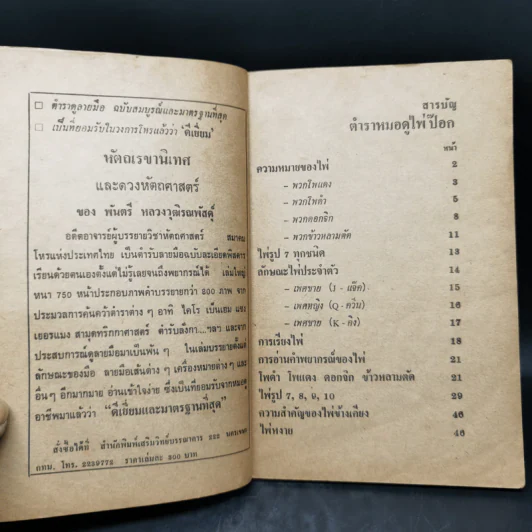 □ ตำราดูลายมือ ฉบับสมบูรณ์และมาตรฐานที่สุด
□ เป็นที่ยอมรับในวงการโหรแล้วว่า "ดีเยี่ยม"
หัตถเรขานิเทศ
และดวงหัตถศาสตร์
ของ พันตรี หลวงวุฒิรณพัสดุ์
อดีตอาจารย์ผู้บรรยายวิชาหัตถศาสตร์ สมาคม
โหรแห่งประเทศไทย เป็นตำรับลายมือฉบับละเอียดพิสดาร
เรียนด้วยตนเองตั้งแต่ไม่รู้เลยจนถึงพยากรณ์ได้ เล่มใหญ่
หนา 750 หน้าประกอบภาพคำบรรยายกว่า 200 ภาพ จาก
ประมวลการค้นคว้าตำราต่าง ๆ อาทิ ไคโร เบ็นแฮม แซง
เยอรแมง สามุททริกกาศาสตร์ ตำรับลังกา...ฯลฯ และจาก
ประสบการณ์ดูลายมือมาเป็นพัน ๆ ในเล่มบรรยายตั้งแต่
ลักษณะของมือ ลายมือเส้นต่าง ๆ เครื่องหมายต่าง ๆ และ
อื่น ๆ อีกมากมาย อ่านเข้าใจง่าย ซึ่งเป็นที่ยอมรับจากหมอดู
อาชีพมาแล้วว่า "ดีเยี่ยมและมาตรฐานที่สุด"
สั่งซื้อได้ที่ สำนักพิมพ์เสริมวิทย์บรรณาคาร 222
กทม. โทร. 2219772 ราคาเล่มละ 200 บาท
สารบัญ
ตำราหมอดูไพ่ป๊อก
หน้า
ความหมายของไพ่ 2
– พวกโพแดง 3
– พวกโพดำ 5
– พวกดอกจิก 8
– พวกข้าวหลามตัด 11
ไพ่รูป 7 ทุกชนิด 13
ลักษณะไพ่ประจำตัว 14
– เพศชาย (J - แจ๊ค) 15
– เพศหญิง (Q - ควีน) 16
– เพศชาย (K - คิง) 17
การเรียงไพ่ 18
การอ่านคำพยากรณ์ของไพ่ 21
โพดำ โพแดง ดอกจิก ข้าวหลามตัด 21
ไพ่รูป 7, 8, 9, 10 29
ความสำคัญของไพ่ข้างเคียง 46
ไพ่หงาย 48